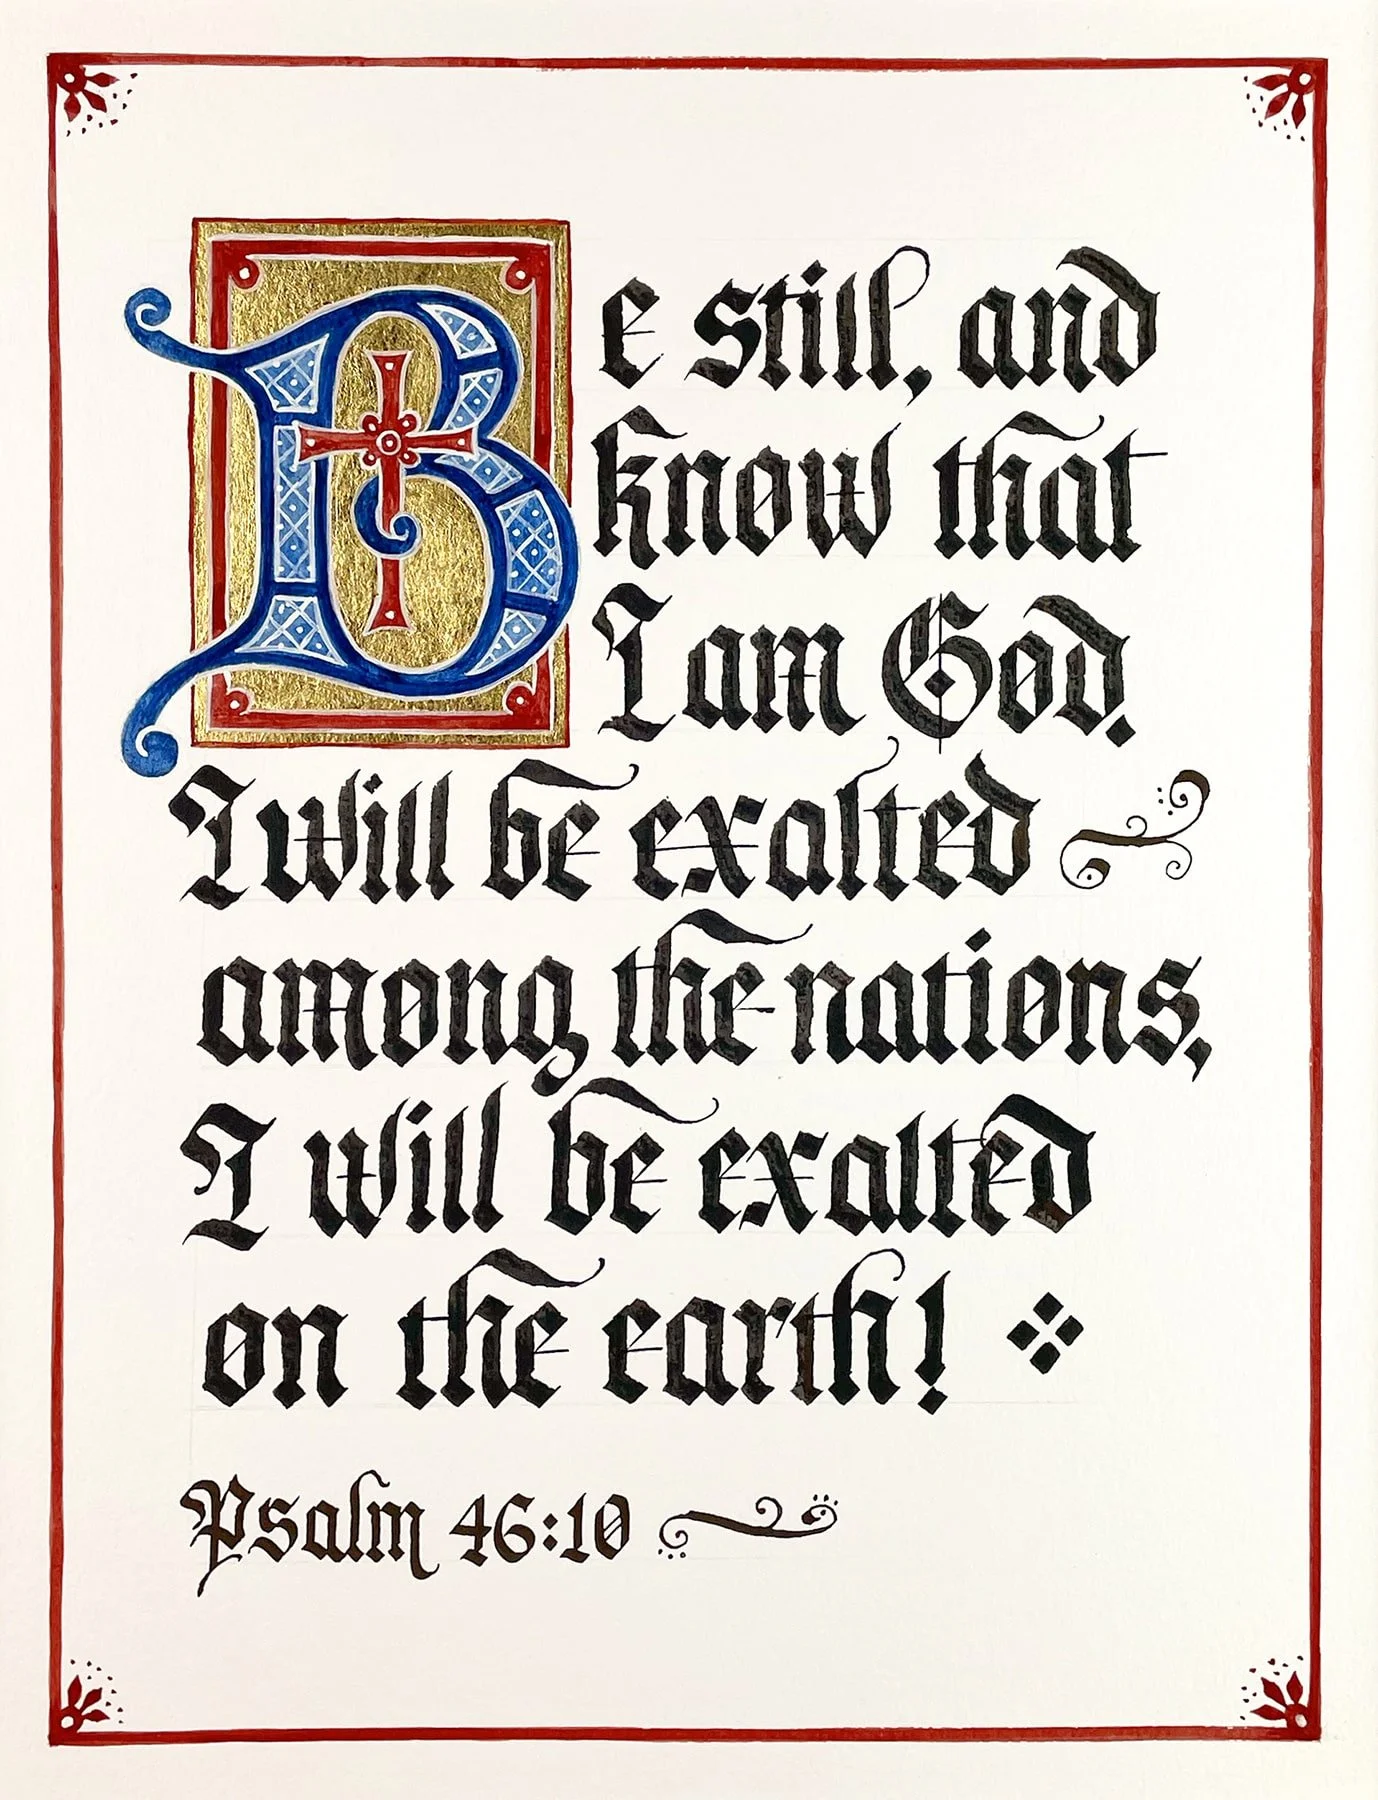 Be still, and
know that
I am God.
I will be exalted
among the nations,
I will be exalted
on the earth!
Psalm 46:10